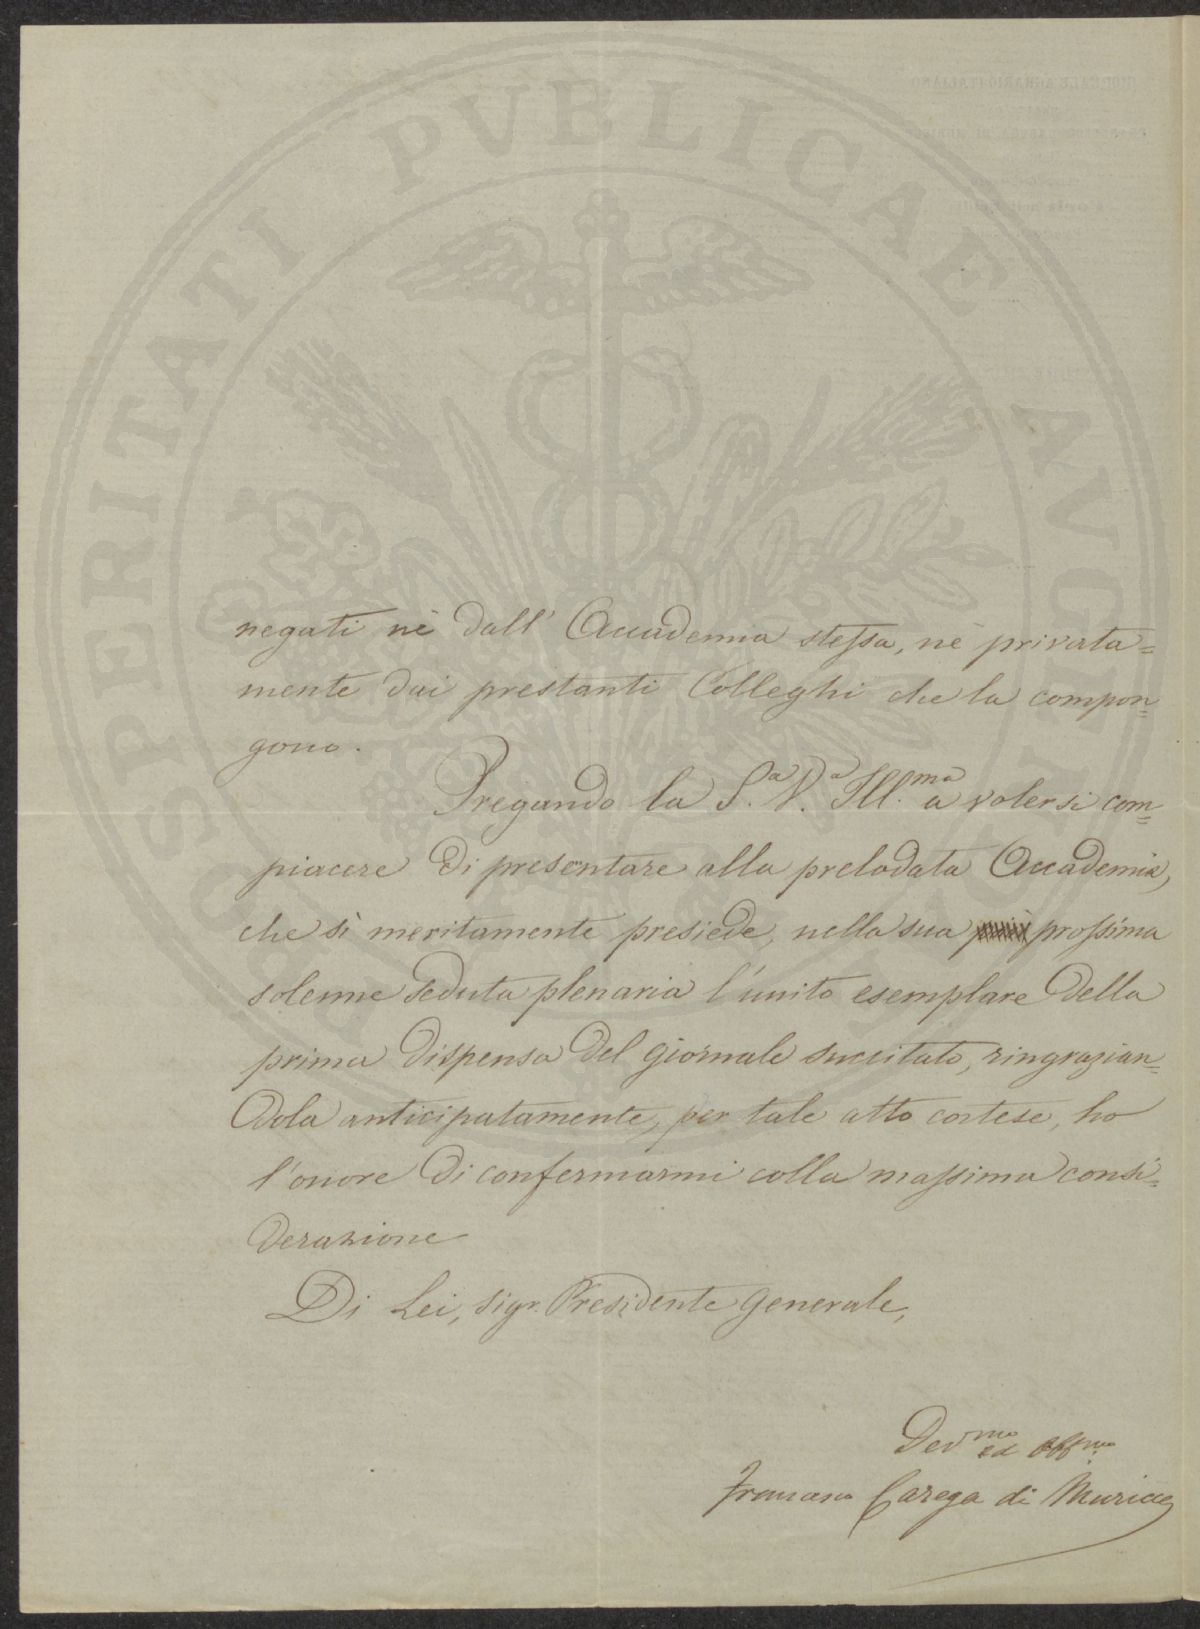 PROSPERITATI PVBLICAE AVGENDAE
negati nè dall' Accademia stessa, nè privata=
mente dai prestanti Colleghi che la compon=
gono.
Pregando la S.ª V.ª Ill.ma a volersi com=
piacere di presentare alla prelodata Accademia,
che sì meritamente presiede, nella sua prossima
solenne seduta plenaria l'unito esemplare della
prima dispensa del giornale succitato, ringrazian=
dola anticipatamente, per tale atto cortese, ho
l'onore di confermarmi colla massima consi=
derazione
Di Lei, sigr. Presidente Generale,
Devmo ed Obbmo
Francesco Carega di Muricce